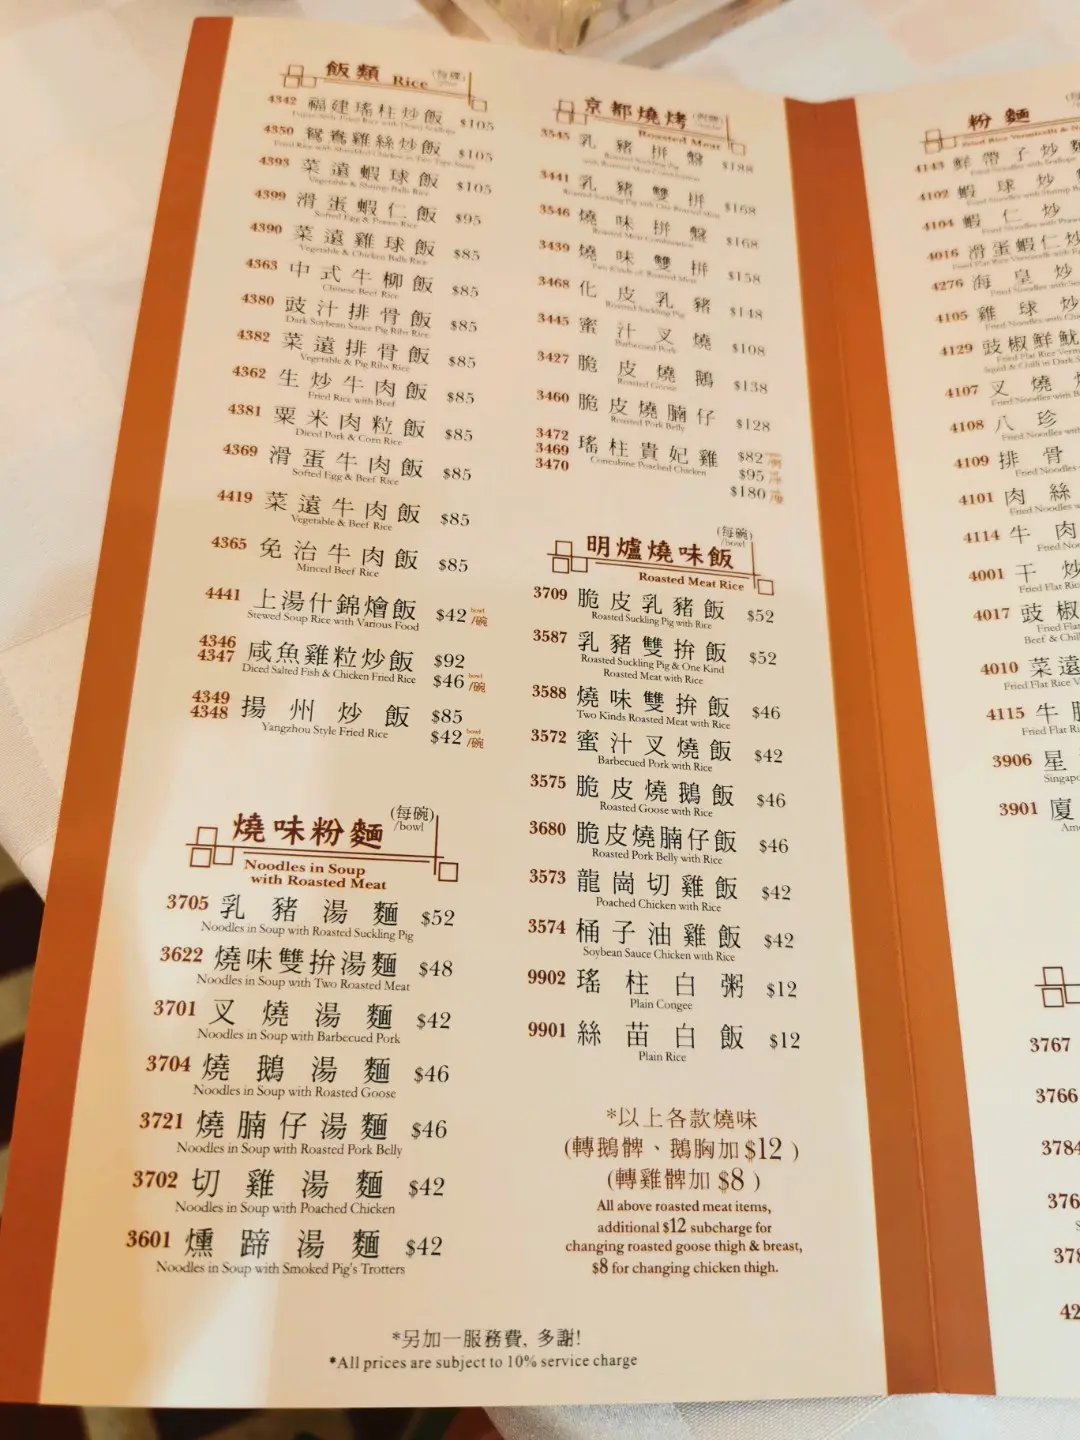 飯類 Rice (每碟)
4342 福建瑤柱炒飯 $105
4350 鴛鴦雞絲炒飯 $105
4393 菜遠蝦球飯 $105
Vegetable & Shrimp Balls Rice
4399 滑蛋蝦仁飯 $95
Softed Egg & Prawn Rice
4390 菜遠雞球飯 $85
Vegetable & Chicken Balls Rice
4363 中式牛柳飯 $85
Chinese Beef Rice
4380 豉汁排骨飯 $85
Dark Soybean Sauce Pig Ribs Rice
4382 菜遠排骨飯 $85
Vegetable & Pig Ribs Rice
4362 生炒牛肉飯 $85
Fried Rice with Beef
4381 粟米肉粒飯 $85
Diced Pork & Corn Rice
4369 滑蛋牛肉飯 $85
Softed Egg & Beef Rice
4419 菜遠牛肉飯 $85
Vegetable & Beef Rice
4365 免治牛肉飯 $85
Minced Beef Rice
4441 上湯什錦燴飯 $42 bowl/碗
Stewed Soup Rice with Various Food
4346
4347 咸魚雞粒炒飯 $92
Diced Salted Fish & Chicken Fried Rice $46 /碗
4349
4348 揚州炒飯 $85
Yangzhou Style Fried Rice $42 bowl/碗
燒味粉麵 (每碗)/bowl
Noodles in Soup
with Roasted Meat
3705 乳豬湯麵 $52
Noodles in Soup with Roasted Suckling Pig
3622 燒味雙拚湯麵 $48
Noodles in Soup with Two Roasted Meat
3701 叉燒湯麵 $42
Noodles in Soup with Barbecued Pork
3704 燒鵝湯麵 $46
Noodles in Soup with Roasted Goose
3721 燒腩仔湯麵 $46
Noodles in Soup with Roasted Pork Belly
3702 切雞湯麵 $42
Noodles in Soup with Poached Chicken
3601 燻蹄湯麵 $42
Noodles in Soup with Smoked Pig's Trotters
京都燒烤
Roasted Meat
3545 乳豬拼盤 $188
3441 乳豬雙拼 $168
3546 燒味拼盤 $168
Roasted Meat Combination
3439 燒味雙拼 $158
Two Kinds of Roasted Meat
3468 化皮乳豬 $148
Roasted Suckling Pig
3445 蜜汁叉燒 $108
Barbecued Pork
3427 脆皮燒鵝 $138
Roasted Goose
3460 脆皮燒腩仔 $128
Roasted Pork Belly
3472
3469 瑤柱貴妃雞 $82
3470 Concubine Poached Chicken $95
$180
明爐燒味飯 (每碗)/bowl
Roasted Meat Rice
3709 脆皮乳豬飯 $52
Roasted Suckling Pig with Rice
3587 乳豬雙拚飯 $52
Roasted Suckling Pig & One Kind
Roasted Meat with Rice
3588 燒味雙拚飯 $46
Two Kinds Roasted Meat with Rice
3572 蜜汁叉燒飯 $42
Barbecued Pork with Rice
3575 脆皮燒鵝飯 $46
Roasted Goose with Rice
3680 脆皮燒腩仔飯 $46
Roasted Pork Belly with Rice
3573 龍崗切雞飯 $42
Poached Chicken with Rice
3574 桶子油雞飯 $42
Soybean Sauce Chicken with Rice
9902 瑤柱白粥 $12
Plain Congee
9901 絲苗白飯 $12
Plain Rice
*以上各款燒味
(轉鵝髀、鵝胸加$12)
(轉雞髀加$8)
All above roasted meat items,
additional $12 subcharge for
changing roasted goose thigh & breast,
$8 for changing chicken thigh.
*另加一服務費, 多謝!
*All prices are subject to 10% service charge
粉麵
4143 鮮帶子炒
4102 蝦球炒
4104 蝦仁炒
4016 滑蛋蝦仁炒
4276 海皇炒
4105 雞球炒
4129 豉椒鮮魷
4107 叉燒
4108 八珍
4109 排骨
4101 肉絲
4114 牛肉
4001 干炒
4017 豉椒
4010 菜遠
4115 牛
3906 星
3901 廈
3767
3766